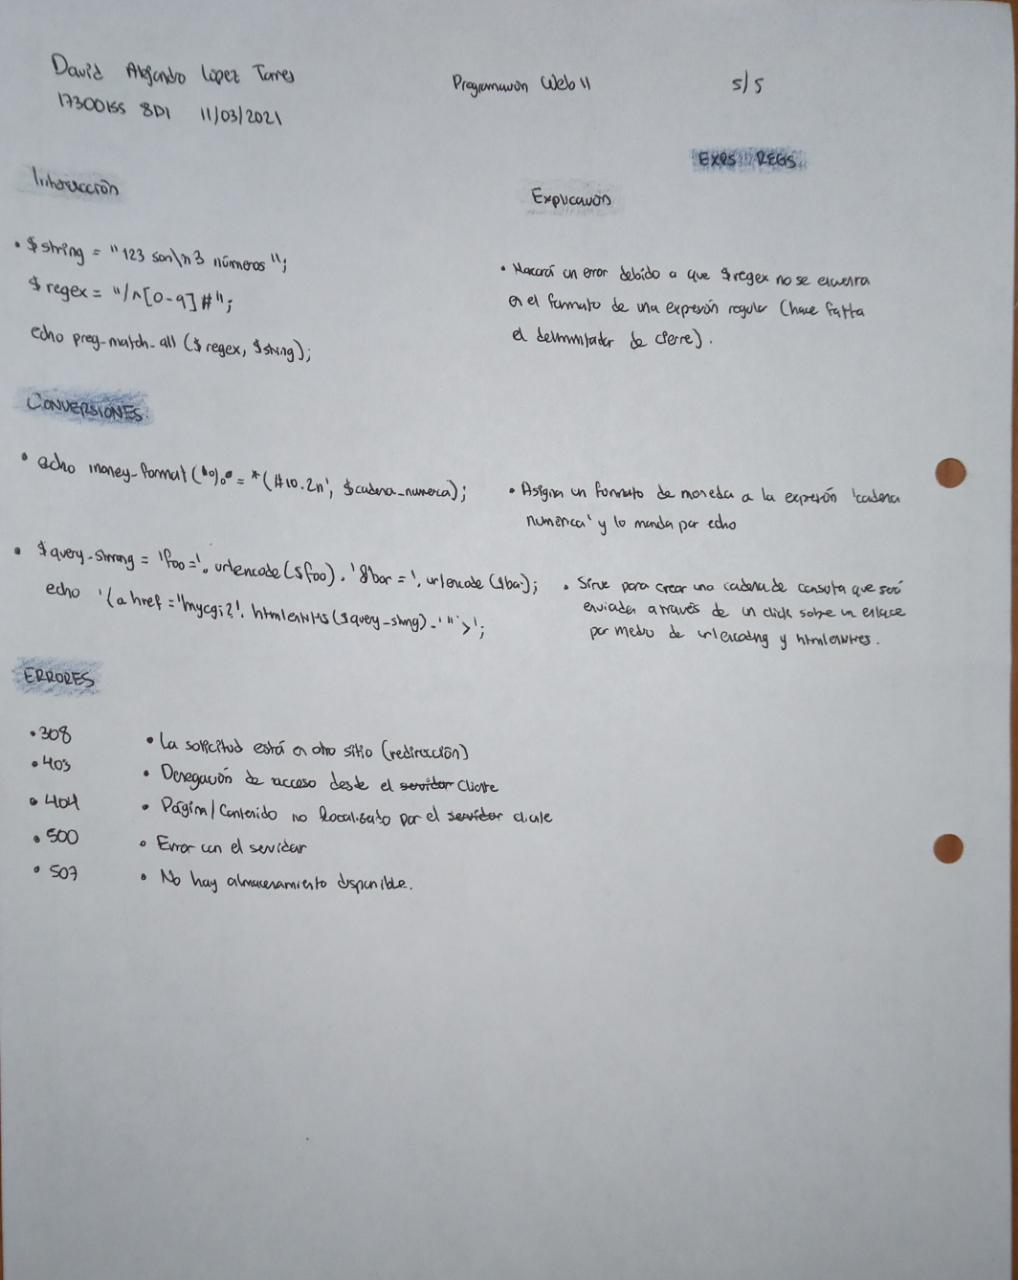 David Alejandro López Torres
Programación Web II
5/5
17300155 8D1 11/03/2021
EXPS REGS.
Instrucción
Explicación
• $string = "123 son\n3 números";
$regex = "/^[0-9]#";
echo preg_match_all ($regex, $string);
• Macará un error debido a que $regex no se encuentra
en el formato de una expresión regular (hace falta
el delimitador de cierre).
CONVERSIONES
• echo money_format('%= *(#10.2n', $cadena_numerica);
• Asigna un formato de moneda a la expresión 'cadena
numérica' y lo manda por echo
• $query_string = 'foo='. urlencode($foo). '&bar=', urlencode($bar);
echo '<a href="mycgi?'. htmlentities($query_string). '">';
• Sirve para crear una cadena de consulta que será
enviada a través de un click sobre un enlace
por medio de urlencoding y htmlentities.
ERRORES
• 308 • La solicitud está en otro sitio (redirección)
• 403 • Denegación de acceso desde el servidor Cliente
• 404 • Página/Contenido no localizado por el servidor cliente
• 500 • Error con el servidor
• 507 • No hay almacenamiento disponible.